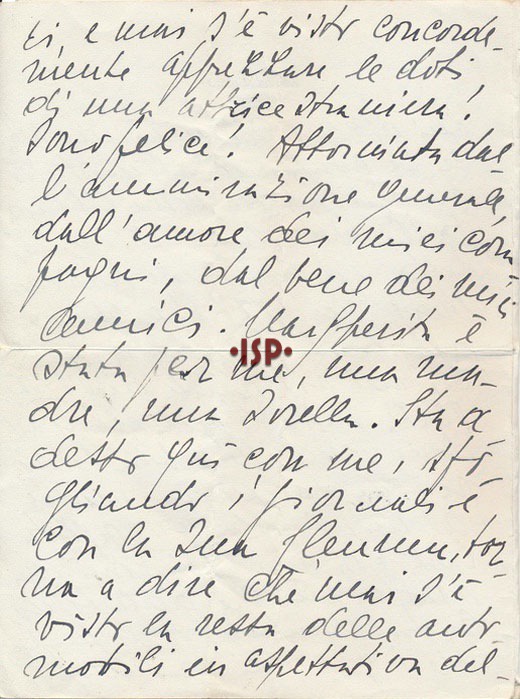 ci e mai s'è visto concorde-
mente apprezzare le doti
di una attrice straniera!
Sono felice! Attorniata dal
l'ammirazione generale,
dall'amore dei miei com
pagni, dal bene dei miei
amici. Margherita è
•ISP•
stata per me, una ma-
dre, una sorella. Sta a
letto qui con me, sfo-
gliando i giornali e,
con la sua flemma, tor
na a dire che mai s'è
vista la ressa delle auto
mobili in aspettativa del-